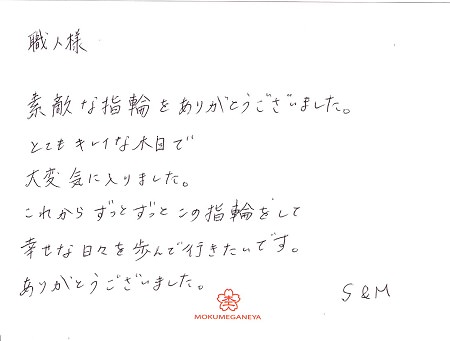 職人様
素敵な指輪をありがとうございました。
とてもキレイな木目で
大変気に入りました。
これからずっとずっとこの指輪をして
幸せな日々を歩んで行きたいです。
ありがとうございました。
S&M
MOKUMEGANEYA